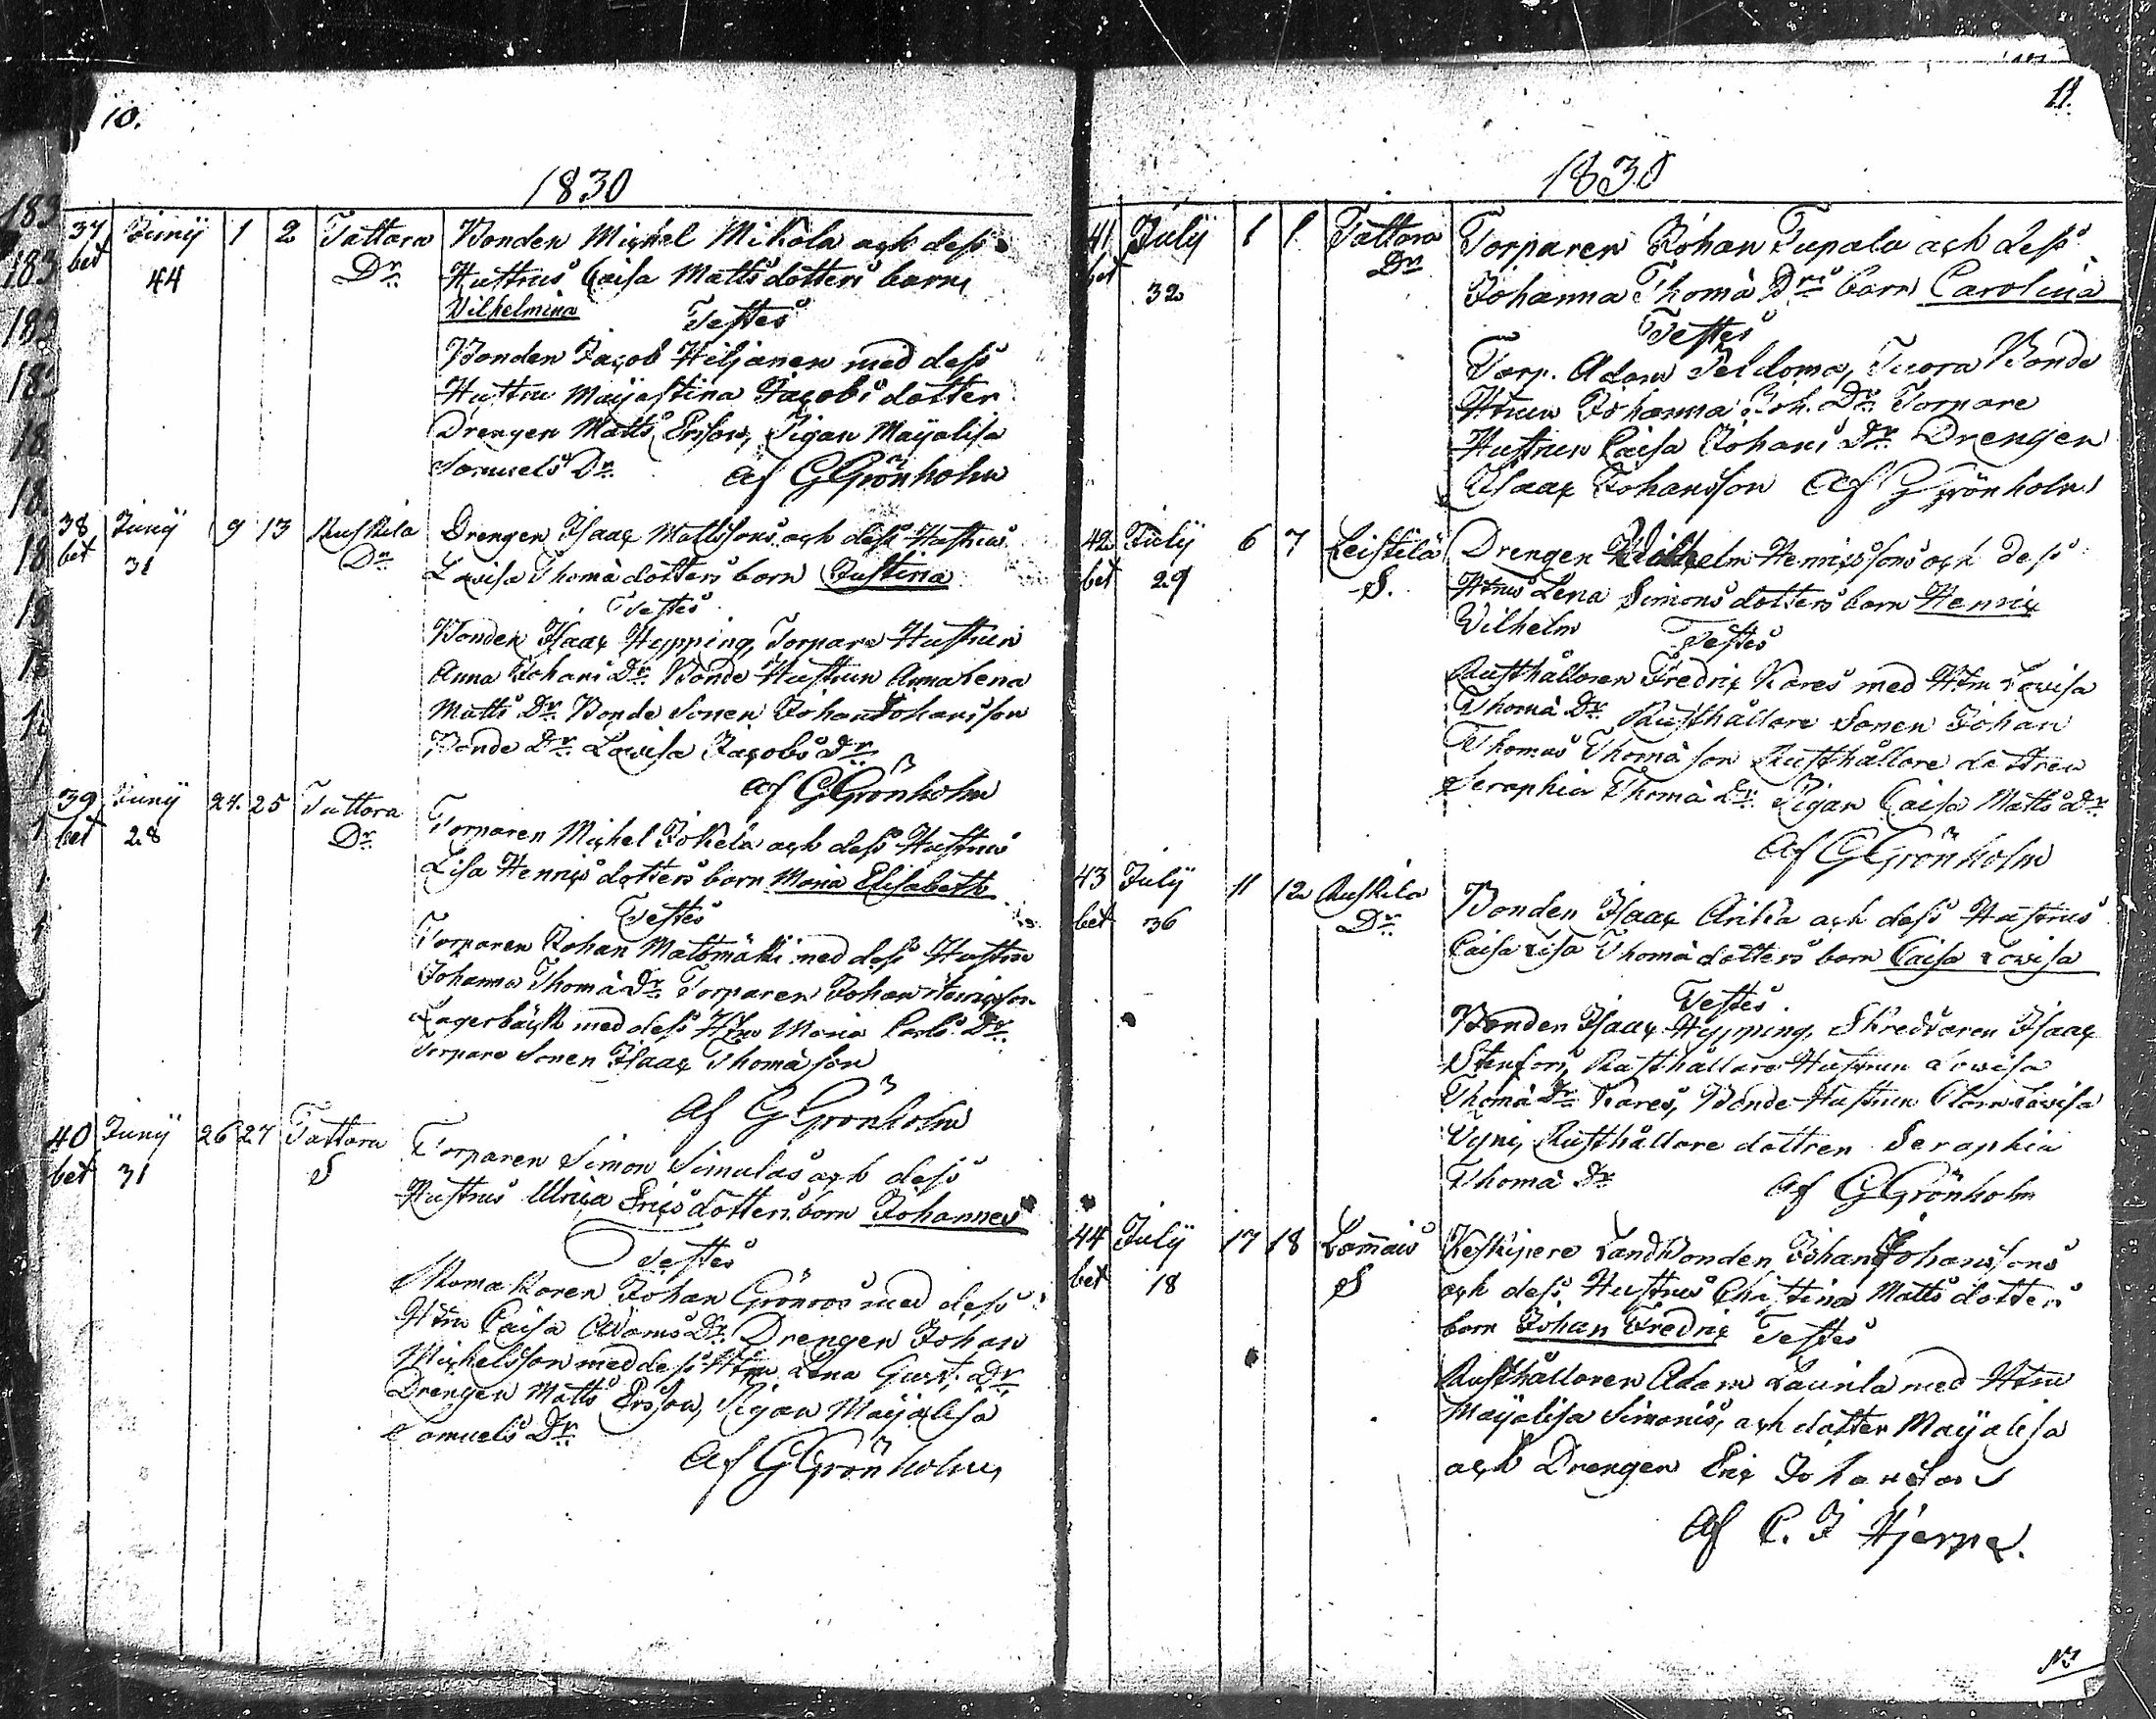 10.
1830
37 Junÿ 1 2 Tattara Bonden Michel Mikola och dess
bet 44 Dr Hustrus Caisa Matts dotters barn
Wilhelmina Testes
Bonden Jacob Hiljanen med dess
Hustru Maÿastina Jacobs dotter
Drengen Matts Ersson, Pigan Maÿalisa
Samuels Dr Af G Grönholm
38 Junÿ 9 13 Ruskila Drengen Isaac Mattssons och dess Hustrus
bet 31 Dr Lovisa Thomä dotters barn Justina
Testes
Bonden Isaac Hypping, Torpare Hustrun
Anna Johans Dr Bonde Hustrun Annalena
Matts Dr Bonde Sonen Johan Johansson
Bonde Dr Lovisa Jacobs Dr
Af G Grönholm
39 Junÿ 24. 25 Tattara Torparen Michel Jokela och dess Hustrus
bet 28 Dr Lisa Henrics dotters barn Maria Elisabeth
Testes
Torparen Johan Mattsmäki med dess Hustru
Johanna Thomä Dr Torparen Johan Henricsson
Lagerbäck med dess Htru Maria Carls Dr
Torpare Sonen Isaac Thomäson
Af G Grönholm
40 Junÿ 26 27 Tattara Torparen Simon Simulas och dess
bet 31 S Hustrus Ulrica Erics dotters barn Johannes
Testes
Skomakaren Johan Grönroos med dess
Htru Caisa Adams Dr Drengen Johan
Michelsson med dess Htru Lena Gust. Dr
Drengen Matts Ersson, Pigan Maÿalisa
Samuels Dr
Af G Grönholm
11.
1830
41 Julÿ 1 1 Tattara Torparen Johan Tupala och dess
bet 32 Dr Johanna Thomä Drs barn Carolina
Testes
Torp. Adam Peldoma, Tuora Bonde
Htrun Johanna Joh. Dr Torpare
Hustrun Caisa Johans Dr Drengen
Isaac Johansson Af G Grönholm
42 Julÿ 6 7 Leistilä Drengen Wilhelm Henricssons och dess
bet 29 S. Htrus Lena Simons dotters barn Henric
Wilhelm Testes
Rusthållaren Fredric Kares med Htru Lovisa
Thomä Dr Rusthållare Sonen Johan
Thomas Thomäson Rusthållare dottren
Seraphia Thomä Dr Pigan Caisa Matts Dr
Af G Grönholm
43 Julÿ 11 12 Ruskila Bonden Isaac Arikka och dess Hustrus
bet 36 Dr Caisa Lisa Thomä dotters barn Caisa Lovisa
Testes
Bonden Isaac Hypping, Skreddaren Isaac
Stenfors, Rusthållare Hustrun Lovisa
Thomä Dr Kares, Bonde Hustrun Clara Lovisa
Rusthållare dottren Seraphia
Thomä Dr Af G Grönholm
44 Julÿ 17 18 Lammais Keskipere Landbonden Johan Johanssons
bet 18 S och dess Hustrus Christina Matts dotters
barn Johan Fredric Testes
Rusthållaren Adam Laurila med Htru
Maÿalisa Simonis, och dotter Maÿalisa
och Drengen Eric Johansson
Af C. J Hjerpe.